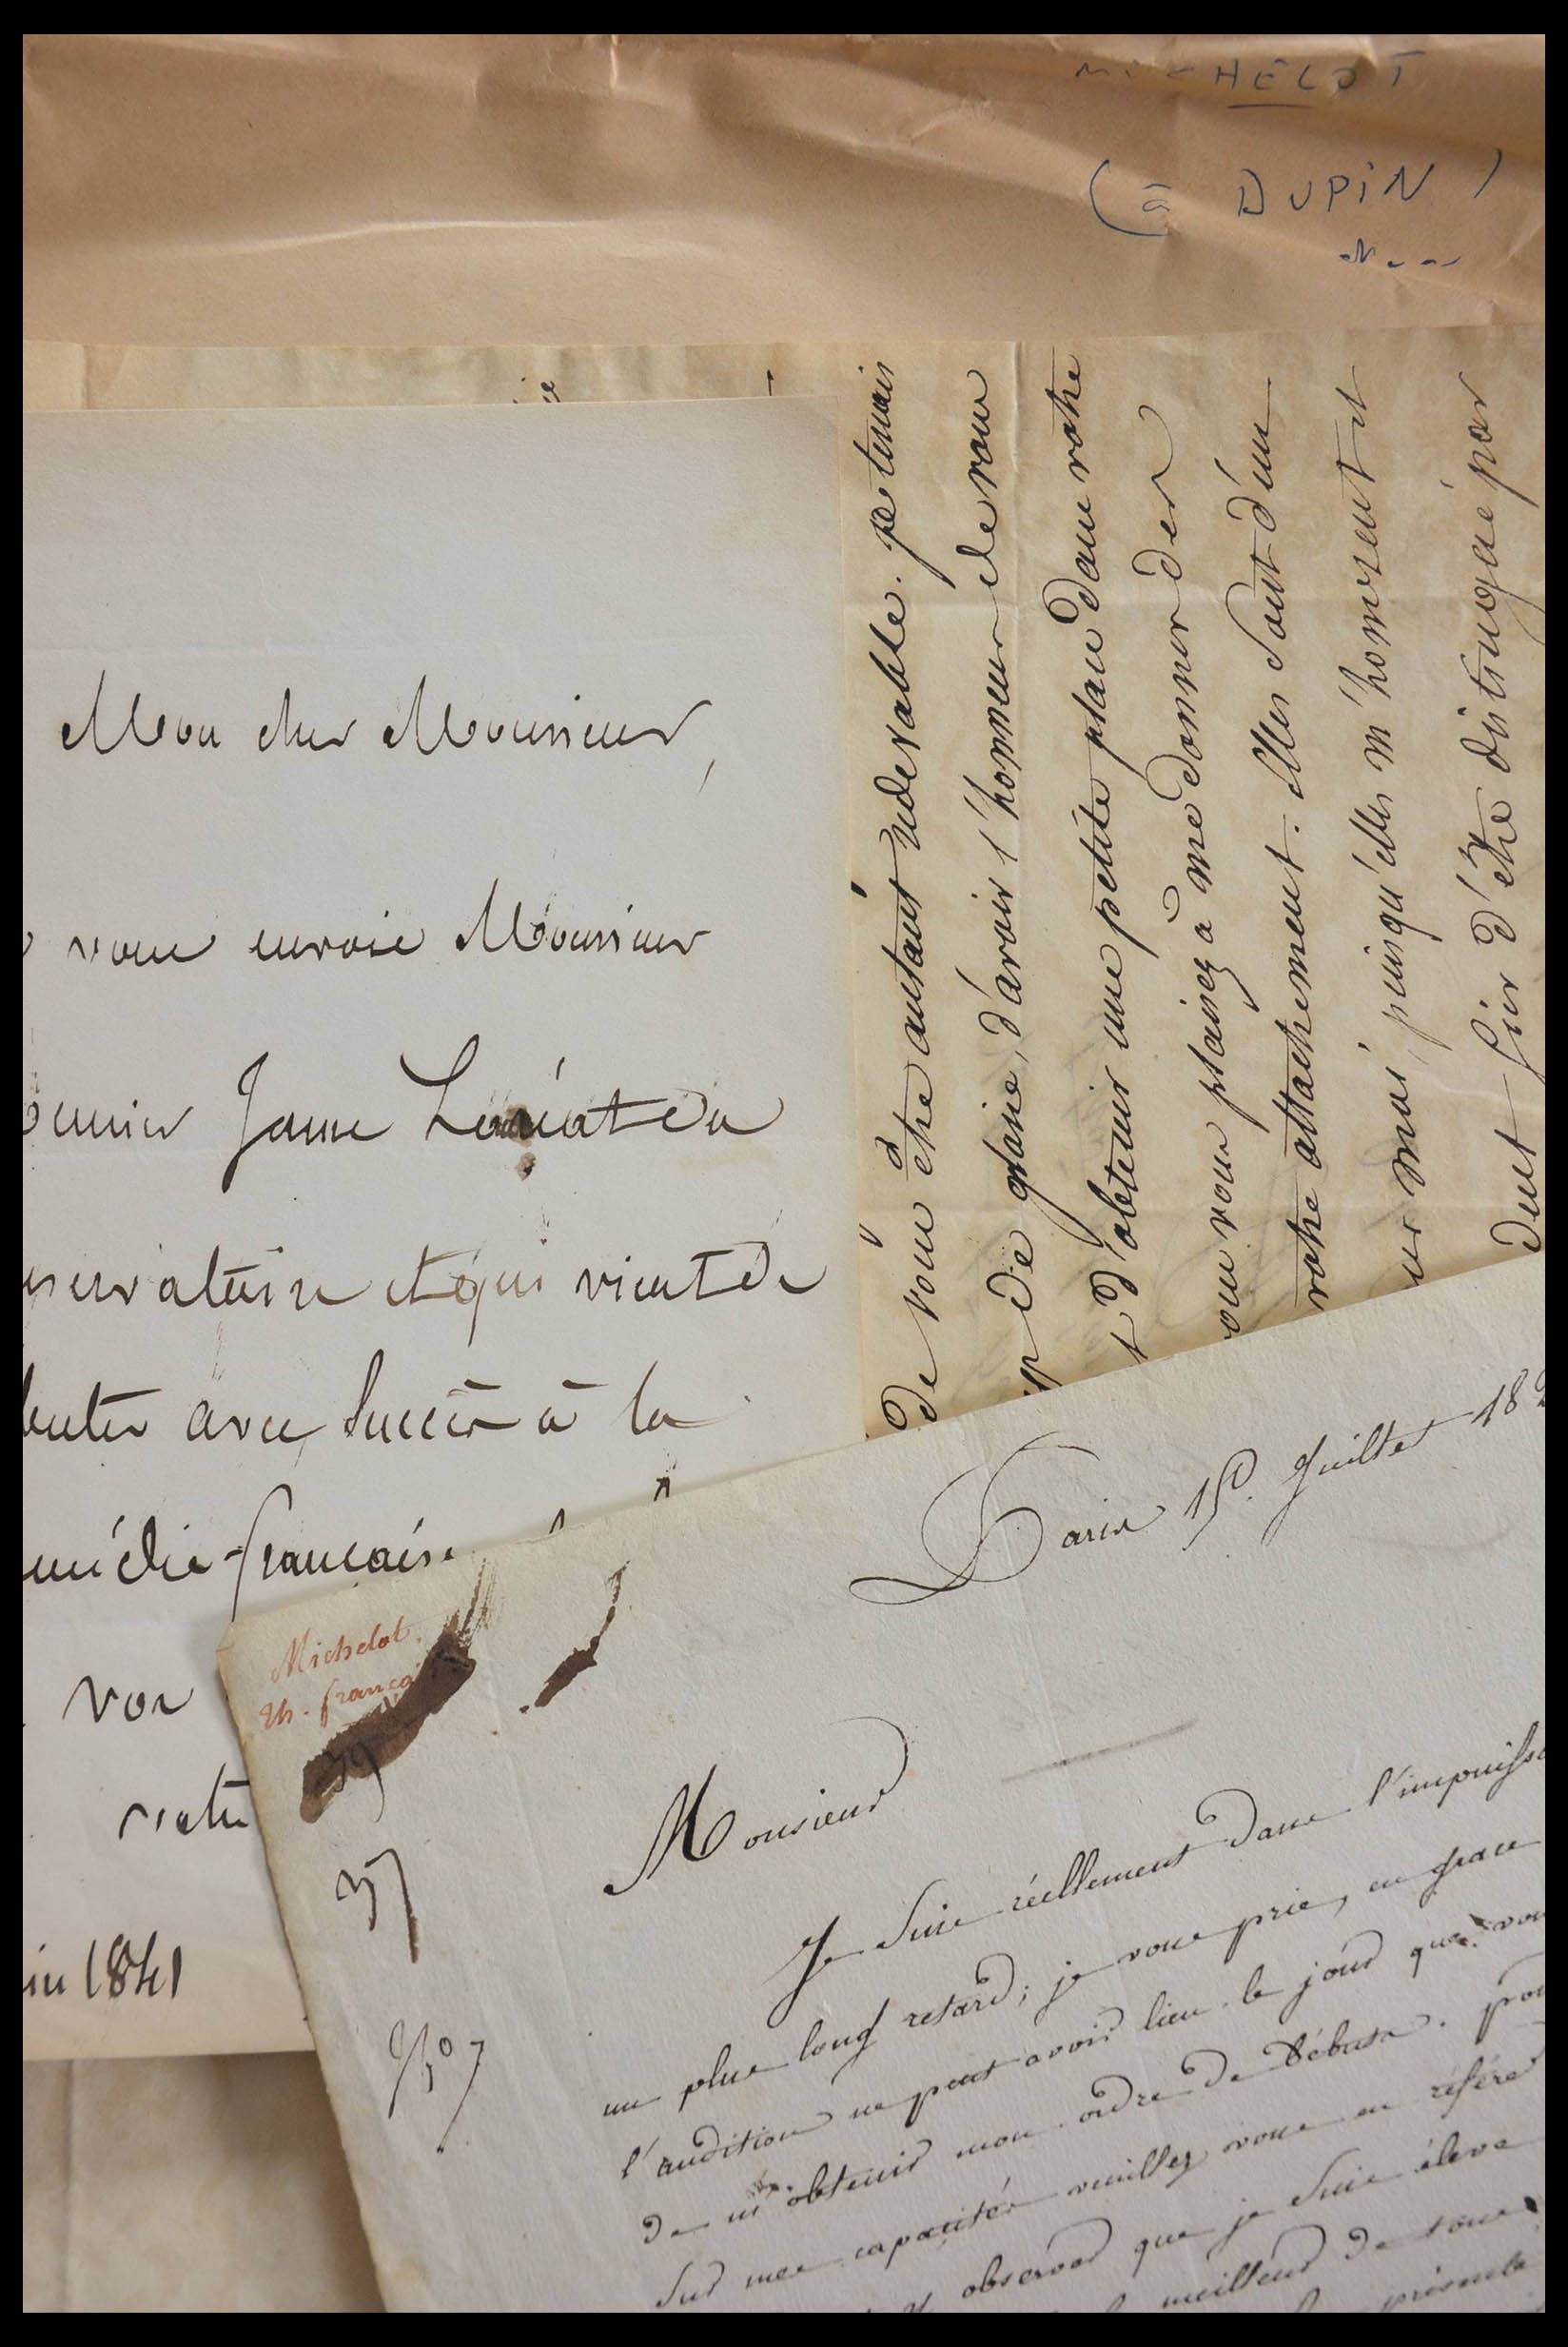 HELOT
(à DUPIN)
Mon cher Monsieur,
vous envoie Monsieur
Jame Lauréat du
servatoire et qui vient de
buter avec succès à la
médie-française.
vos
in 1841
de vous être autant redevable. je tenais
de plaisir, d'avoir l'honneur de vous
t d'obtenir une petite place dans votre
ou vous plaisez à me donner des
votre attachement. Elles sont d'un
ur moi, puisqu'elles m'honorent et
dent fier d'être distingué par
Paris 15 Juillet 18
Michelot
th. françai
Monsieur
Je suis réellement dans l'impuissa
un plus long retard; je vous prie, en grace
l'audition ne peut avoir lieu le jour que vou
de m'obtenir mon ordre de débuts. pou
sur mes capacités veuillez vous en référer
observer que je suis élève
meilleur de tous